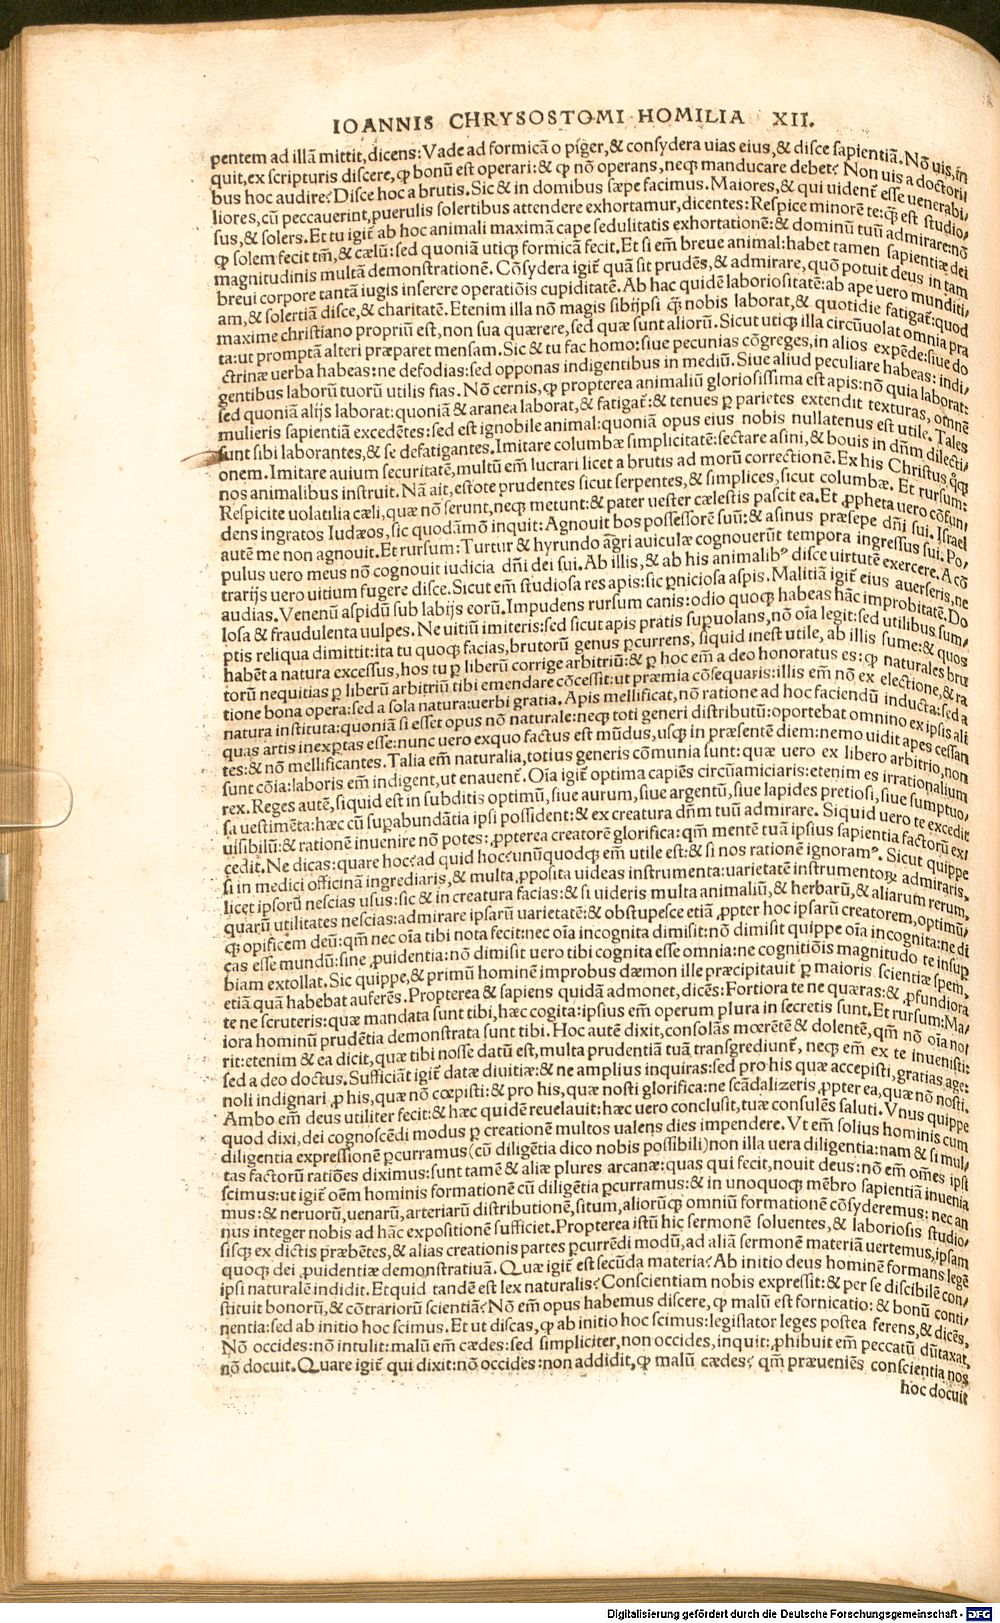 IOANNIS CHRYSOSTOMI HOMILIA XII.
pentem ad illã mittit, dicens: Vade ad formicã o piger, & consydera uias eius, & disce sapientiã. Nõ uis, in
quit, ex scripturis discere, ꝙ bonũ est operari: & ꝙ nõ operans, neqꝫ manducare debet? Non uis a doctori
bus hoc audire? Disce hoc a brutis. Sic & in domibus sæpe facimus. Maiores, & qui uident̃ esse uenerabi/
liores, cũ peccauerint, puerulis solertibus attendere exhortamur, dicentes: Respice minorẽ te: q̃ est studio/
sus, & solers. Et tu igit̃ ab hoc animali maximã cape sedulitatis exhortationẽ: & dominũ tuũ admirare: nõ
ꝙ solem fecit tm̃, & cælũ: sed quoniã utiqꝫ formicã fecit. Et si em̃ breue animal: habet tamen sapientiæ dei
magnitudinis multã demonstrationẽ. Cõsydera igit̃ quã sit prudẽs, & admirare, quõ potuit deus in tam
breui corpore tantã iugis inserere operatiõis cupiditatẽ. Ab hac quidẽ laboriositatẽ: ab ape uero munditi/
am, & solertiã disce, & charitatẽ. Etenim illa nõ magis sibijpsi q̃ nobis laborat, & quotidie fatigat̃: quod
maxime christiano propriũ est, non sua quærere, sed quæ sunt aliorũ. Sicut utiqꝫ illa circũuolat omnia pra
ta: ut promptã alteri præparet mensam. Sic & tu fac homo: siue pecunias cõgreges, in alios expẽde: siue do
ctrinæ uerba habeas: ne defodias: sed opponas indigentibus in mediũ. Siue aliud peculiare habeas: indi/
gentibus laborũ tuorũ utilis fias. Nõ cernis, ꝙ propterea animaliũ gloriosissima est apis: nõ quia laborat:
sed quoniã alijs laborat: quoniã & aranea laborat, & fatigat̃: & tenues ꝑ parietes extendit texturas, omnẽ
mulieris sapientiã excedẽtes: sed est ignobile animal: quoniã opus eius nobis nullatenus est utile. Tales
sunt sibi laborantes, & se defatigantes. Imitare columbæ simplicitatẽ: sectare asini, & bouis in dñm dilecti/
onem. Imitare auium securitatẽ, multũ em̃ lucrari licet a brutis ad morũ correctionẽ. Ex his Christus q̊qꝫ
nos animalibus instruit. Nã ait, estote prudentes sicut serpentes, & simplices, sicut columbæ. Et rursum:
Respicite uolatilia cæli, quæ nõ serunt, neqꝫ metunt: & pater uester cælestis pascit ea. Et ꝓpheta uero cõfun/
dens ingratos Iudæos, sic quodãmõ inquit: Agnouit bos possessorẽ suũ: & asinus præsepe dñi sui. Israel
autẽ me non agnouit. Et rursum: Turtur & hyrundo ãgri auiculæ cognouerũt tempora ingressus sui. Po/
pulus uero meus nõ cognouit iudicia dñi dei sui. Ab illis, & ab his animalib⁹ disce uirtutẽ exercere. A cõ
trarijs uero uitium fugere disce. Sicut em̃ studiosa res apis: sic ꝑniciosa aspis. Malitiã igit̃ eius auerseris, ne
audias. Venenũ aspidũ sub labijs eorũ. Impudens rursum canis: odio quoqꝫ habeas hãc improbitatẽ. Do
losa & fraudulenta uulpes. Ne uitiũ imiteris: sed sicut apis pratis supuolans, nõ oĩa legit: sed utilibus sum/
ptis reliqua dimittit: ita tu quoqꝫ facias, brutorũ genus ꝑcurrens, siquid inest utile, ab illis sume: & quos
habẽt a natura excessus, hos tu ꝑ liberũ corrige arbitriũ: & ꝑ hoc em̃ a deo honoratus es: ꝙ naturales bru
torũ nequitias ꝑ liberũ arbitriũ tibi emendare cõcessit: ut præmia cõsequaris: illis em̃ nõ ex electione, & ra
tione bona opera: sed a sola natura: uerbi gratia. Apis mellificat, nõ ratione ad hoc faciendũ inducta: sed a
natura instituta: quoniã si esset opus nõ naturale: neqꝫ toti generi distributũ: oportebat omnino ex ipsis ali
quas artis inexꝑtas esse: nunc uero exquo factus est mũdus, usqꝫ in præsentẽ diem: nemo uidit apes cessan
tes: & nõ mellificantes. Talia em̃ naturalia, totius generis cõmunia sunt: quæ uero ex libero arbitrio, non
sunt cõia: laboris em̃ indigent, ut enauent̃. Oĩa igit̃ optima capiẽs circũamiciaris: etenim es irrationalium
rex. Reges autẽ, siquid est in subditis optimũ, siue aurum, siue argentũ, siue lapides pretiosi, siue sumptuo/
sa uestimẽta: hæc cũ supabundãtia ipsi possident: & ex creatura dñm tuũ admirare. Siquid uero te excedit
uisibiliũ: & rationẽ inuenire nõ potes: ꝓpterea creatorẽ glorifica: qm̃ mentẽ tuã ipsius sapientia factorũ ex/
cedit. Ne dicas: quare hoc? ad quid hoc? unũquodqꝫ em̃ utile est: & si nos rationẽ ignoram⁹. Sicut quippe
si in medici officinã ingrediaris, & multa ꝓposita uideas instrumenta: uarietatẽ instrumentoꝝ admiraris,
licet ipsorũ nescias usus: sic & in creatura facias: & si uideris multa animaliũ, & herbarũ, & aliarum rerum,
quarũ utilitates nescias: admirare ipsarũ uarietatẽ: & obstupesce etiã ꝓpter hoc ipsarũ creatorem, optimũ/
qꝫ opificem deũ: qm̃ nec oĩa tibi nota fecit: nec oĩa incognita dimisit: nõ dimisit quippe oĩa incognita: ne di
cas esse mundũ: sine ꝓuidentia: nõ dimisit uero tibi cognita esse omnia: ne cognitiõis magnitudo te insuꝑ
biam extollat. Sic quippe, & primũ hominẽ improbus dæmon ille præcipitauit ꝑ maioris scientiæ spem,
etiã quã habebat auferẽs. Propterea & sapiens quidã admonet, dicẽs: Fortiora te ne quæras: & ꝓfundiora
te ne scruteris: quæ mandata sunt tibi, hæc cogita: ipsius em̃ operum plura in secretis sunt. Et rursum: Ma/
iora hominũ prudẽtia demonstrata sunt tibi. Hoc autẽ dixit, consolãs mœrẽtẽ & dolentẽ, qm̃ nõ oĩa no/
rit: etenim & ea dicit, quæ tibi nosse datũ est, multa prudentiã tuã transgrediunt̃, neqꝫ em̃ ex te inuenisti:
sed a deo doctus. Sufficiãt igit̃ datæ diuitiæ: & ne amplius inquiras: sed pro his quæ accepisti, gratias age:
noli indignari ꝓ his, quæ nõ cœpisti: & pro his, quæ nosti glorifica: ne scãdalizeris ꝓpter ea, quæ nõ nosti.
Ambo em̃ deus utiliter fecit: & hæc quidẽ reuelauit: hæc uero conclusit, tuæ consulẽs saluti. Vnus quippe
quod dixi, dei cognoscẽdi modus ꝑ creationẽ multos ualens dies impendere. Vt em̃ solius hominis cum
diligentia expressionẽ ꝑcurramus (cũ diligẽtia dico nobis possibili) non illa uera diligentia: nam & si mul/
tas factorũ ratiões diximus: sunt tamẽ & aliæ plures arcanæ: quas qui fecit, nouit deus: nõ em̃ om̃es ipsi
scimus: ut igit̃ oẽm hominis formationẽ cũ diligẽtia ꝑcurramus: & in unoquoqꝫ mẽbro sapientiã inuenia
mus: & neruorũ, uenarũ, arteriarũ distributionẽ, situm, aliorũqꝫ omniũ formationẽ cõsyderemus: nec an
nus integer nobis ad hãc expositionẽ sufficiet. Propterea istũ hic sermonẽ soluentes, & laboriosis studio/
sisqꝫ ex dictis præbẽtes, & alias creationis partes ꝑcurrẽdi modũ, ad aliã sermonẽ materiã uertemus, ipsam
quoqꝫ dei ꝓuidentiæ demonstratiuã. Quæ igit̃ est secũda materia? Ab initio deus hominẽ formans legẽ
ipsi naturalẽ indidit. Etquid tandẽ est lex naturalis? Conscientiam nobis expressit: & per se discibilẽ con/
stituit bonorũ, & cõtrariorũ scientiã? Nõ em̃ opus habemus discere, ꝙ malũ est fornicatio: & bonũ conti/
nentia: sed ab initio hoc scimus. Et ut discas, ꝙ ab initio hoc scimus: legislator leges postea ferens, & dicẽs,
Nõ occides: nõ intulit: malũ em̃ cædes: sed simpliciter, non occides, inquit: ꝓhibuit em̃ peccatũ dũtaxat,
nõ docuit. Quare igit̃ qui dixit: nõ occides: non addidit, ꝙ malũ cædes? qm̃ præueniẽs conscientia nos
hoc docuit
Digitalisierung gefördert durch die Deutsche Forschungsgemeinschaft - DFG